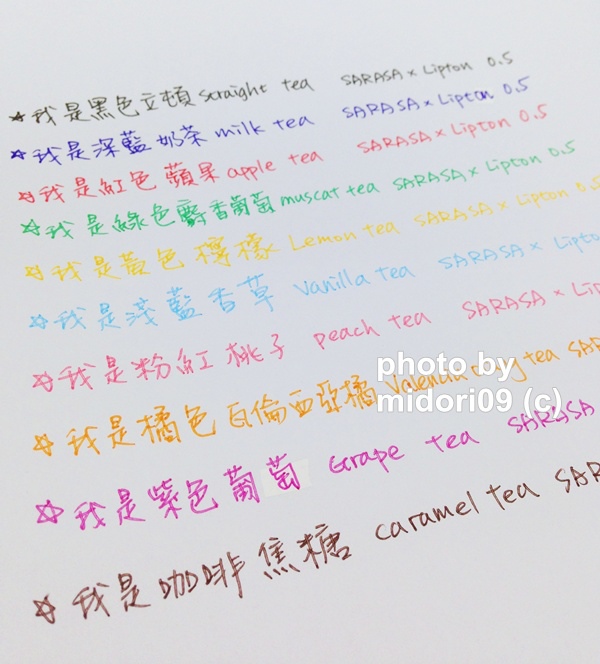 ☆我是黑色立頓 straight tea SARASA x Lipton 0.5
☆我是深藍奶茶 milk tea SARASA x Lipton 0.5
☆我是紅色蘋果 apple tea SARASA x Lipton 0.5
☆我是綠色麝香葡萄 muscat tea SARASA x Lipton 0.5
☆我是黃色檸檬 Lemon tea SARASA x Lipton 0.5
☆我是淺藍香草 Vanilla tea SARASA x Lipto
☆我是粉紅桃子 peach tea SARASA x Lip
☆我是橘色瓦倫西亞橘 Valencia tea SAR
☆我是紫色葡萄 Grape tea SARASA
☆我是咖啡焦糖 caramel tea SAR
photo by
midori09 (c)